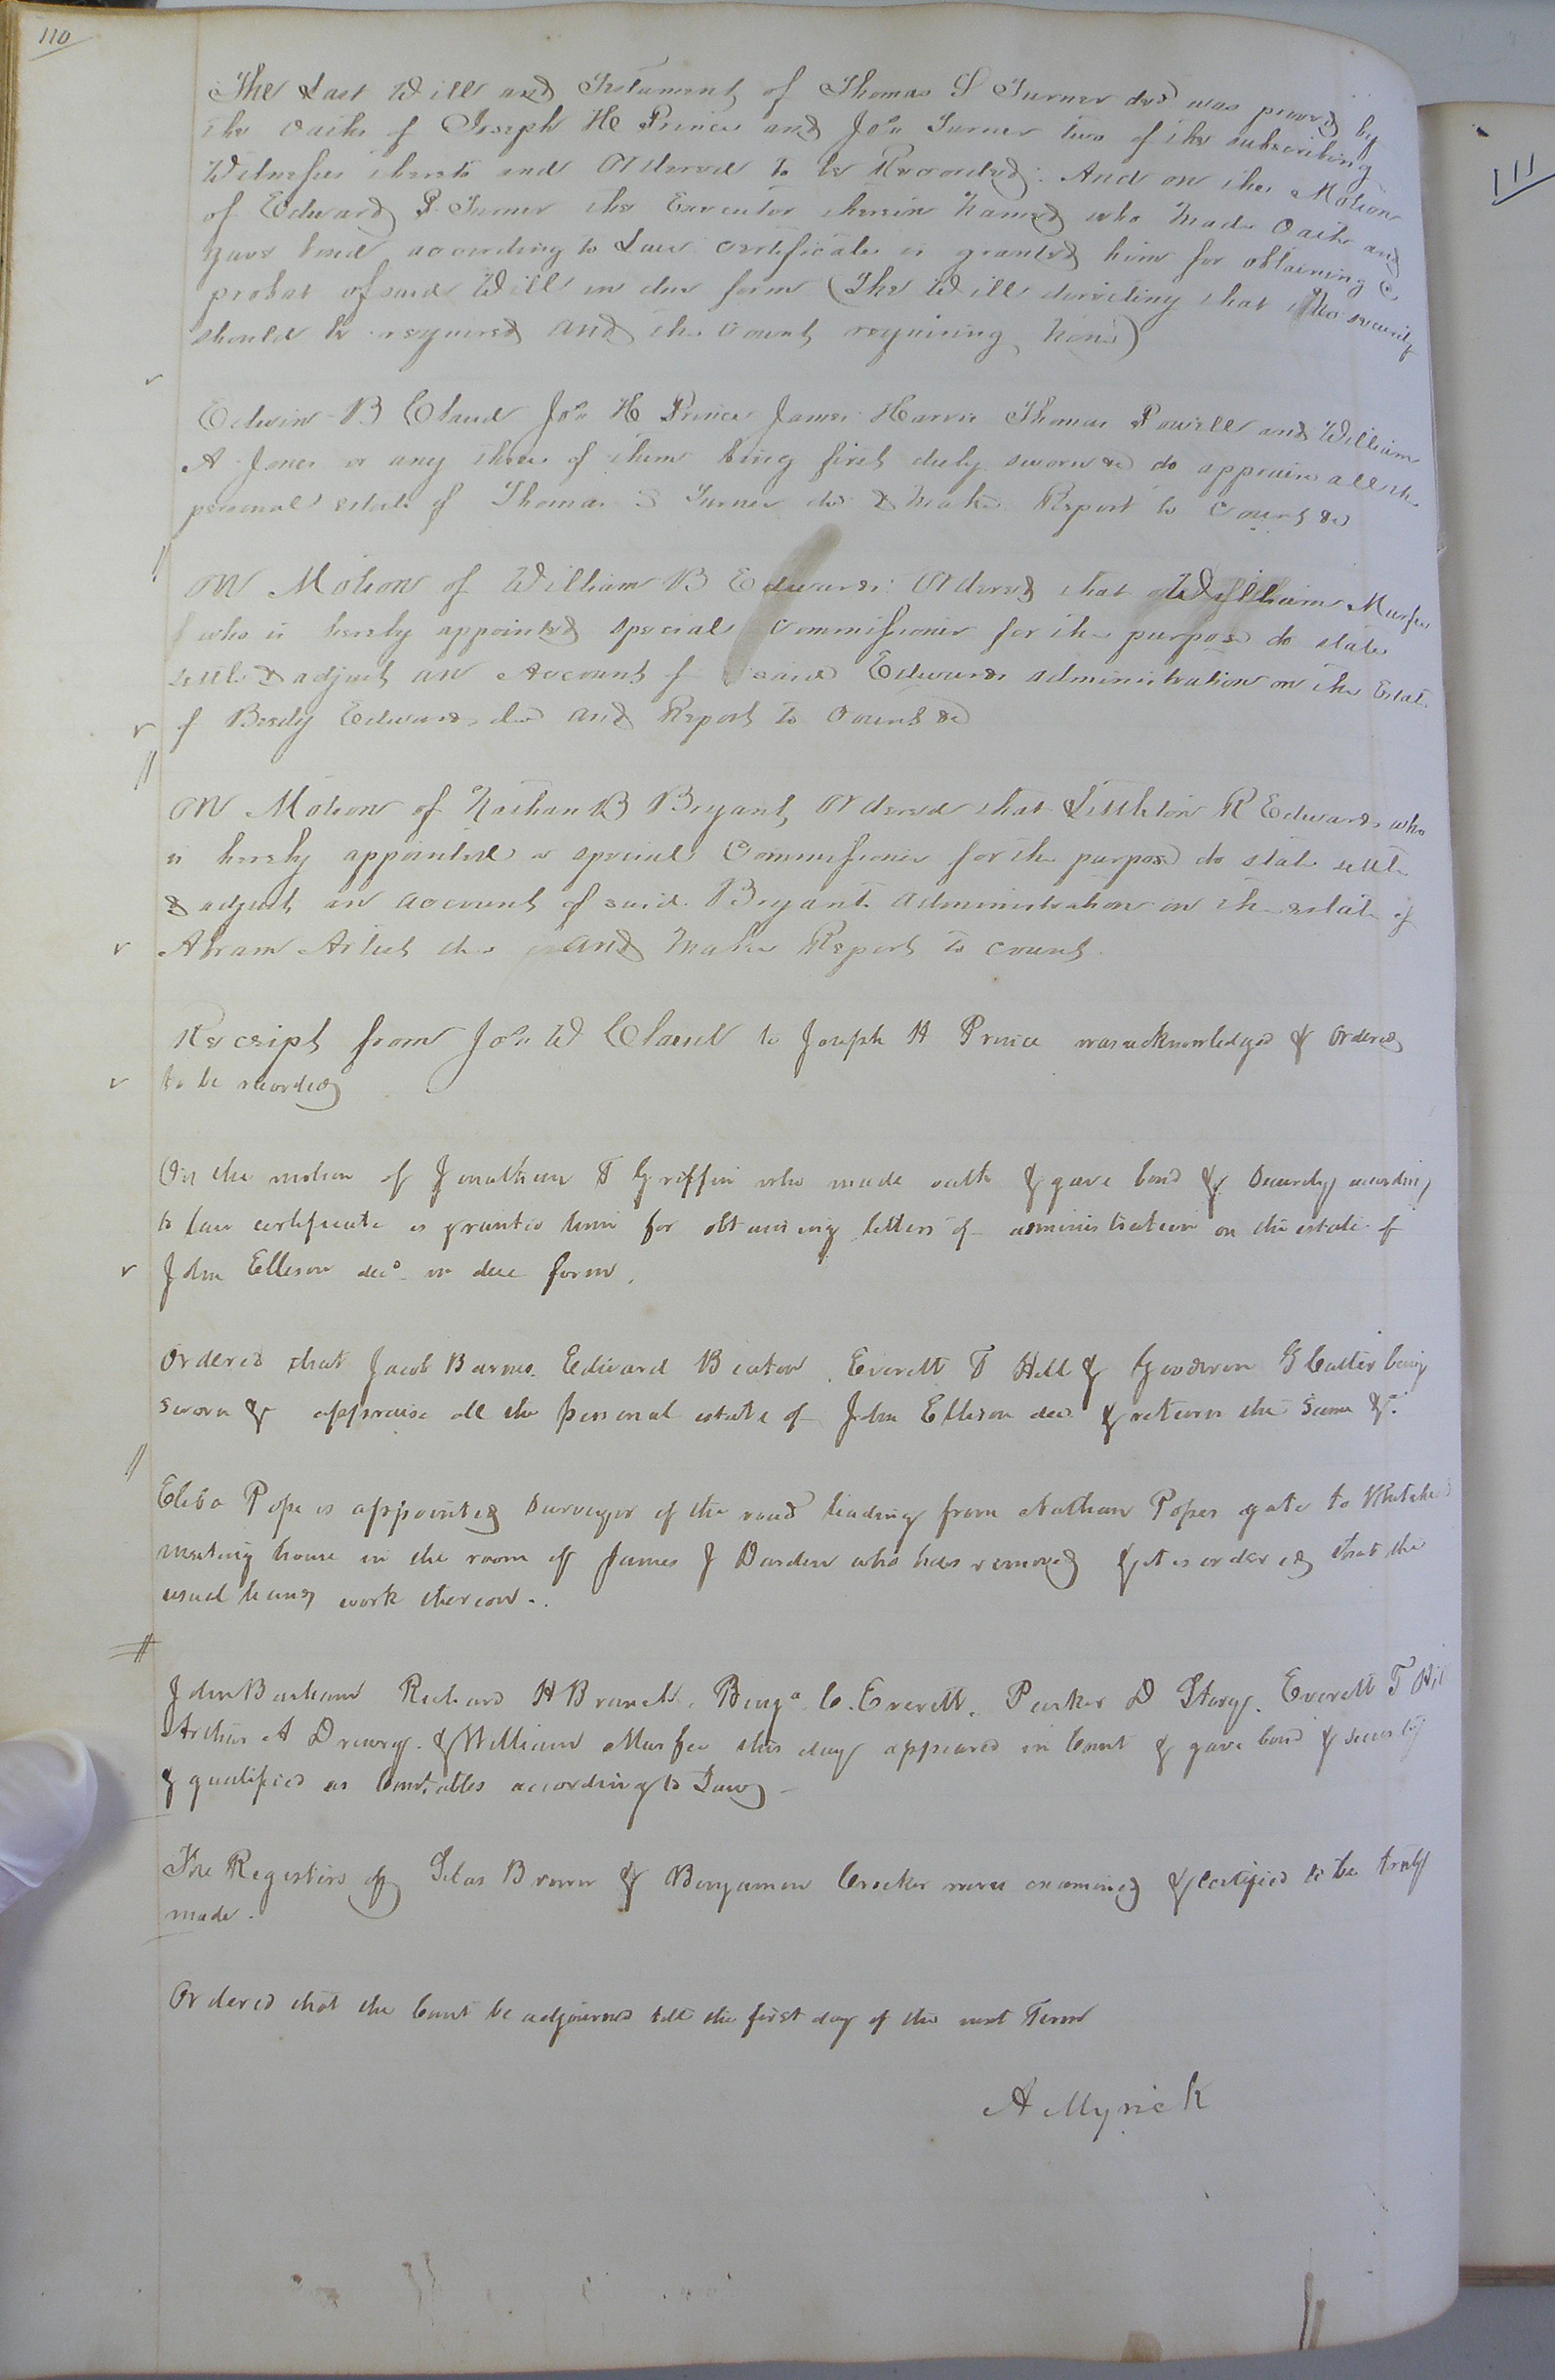 110
The Last Will and Testament of Thomas S Turner decd was proved by
the oaths of Joseph H Prince and Jos. Turner two of the subscribing
Witnesses thereto and Ordered to be Recorded: And on the Motion
of Edward P. Turner the Executor therein Named who Made Oath and
gave bond according to Law certificate is granted him for obtaining a
probat of said Will in due form (The Will directing that no security
should be required and the Court requiring None)
Edwin B Claud Jos. H Prince James Harris Thomas Powell and William
A Jones or any three of them being first duly sworn &c do appraise all the
personal estate of Thomas S Turner decd & Make Report to Court &c
ON Motion of William B Edwards: Ordered that William Murfee
who is hereby appointed special Commissioner for the purpose do state
settle & adjust an Account of said Edwards administration on the Estate
of Edwards decd and Report to Court &c
ON Motion of Nathan B Bryant, Ordered that Littleton R Edwards who
is hereby appointed a special Commissioner for the purpose do state settle
& adjust an account of said Bryants administration on the estate of
Abram Artist decd and Make Report to court.
Receipt from Jos. W Claud to Joseph H Prince was acknowledged & ordered
to be recorded
On the motion of Jonathan T Griffin who made oath & gave bond & Security according
to law certificate is granted him for obtaining letters of administration on the estate of
John Elleson decd in due form.
Ordered that Jacob Barnes. Edward Beaton. Everett T Hill & Goodwin G Cutler being
sworn & appraise all the personal estate of John Elleson decd & return the same &c
Pope is appointed Surveyor of the road leading from Nathan Popes gate to
meeting house in the room of James J Darden who has removed & it is ordered that the
usual hands work thereon.
John Barham Richard H Branch. Benja. C. Everett. Parker D Story. Everett T Hill
Arthur A Drewry. & William Murfee this day appeared in Court & gave bond & security
& qualified as Constables according to Law
The Registers of Silas Brown & Benjamin Crocker were examined & certified to be truly
made.
Ordered that the Court be adjourned till the first day of the next Term
A Myrick
111